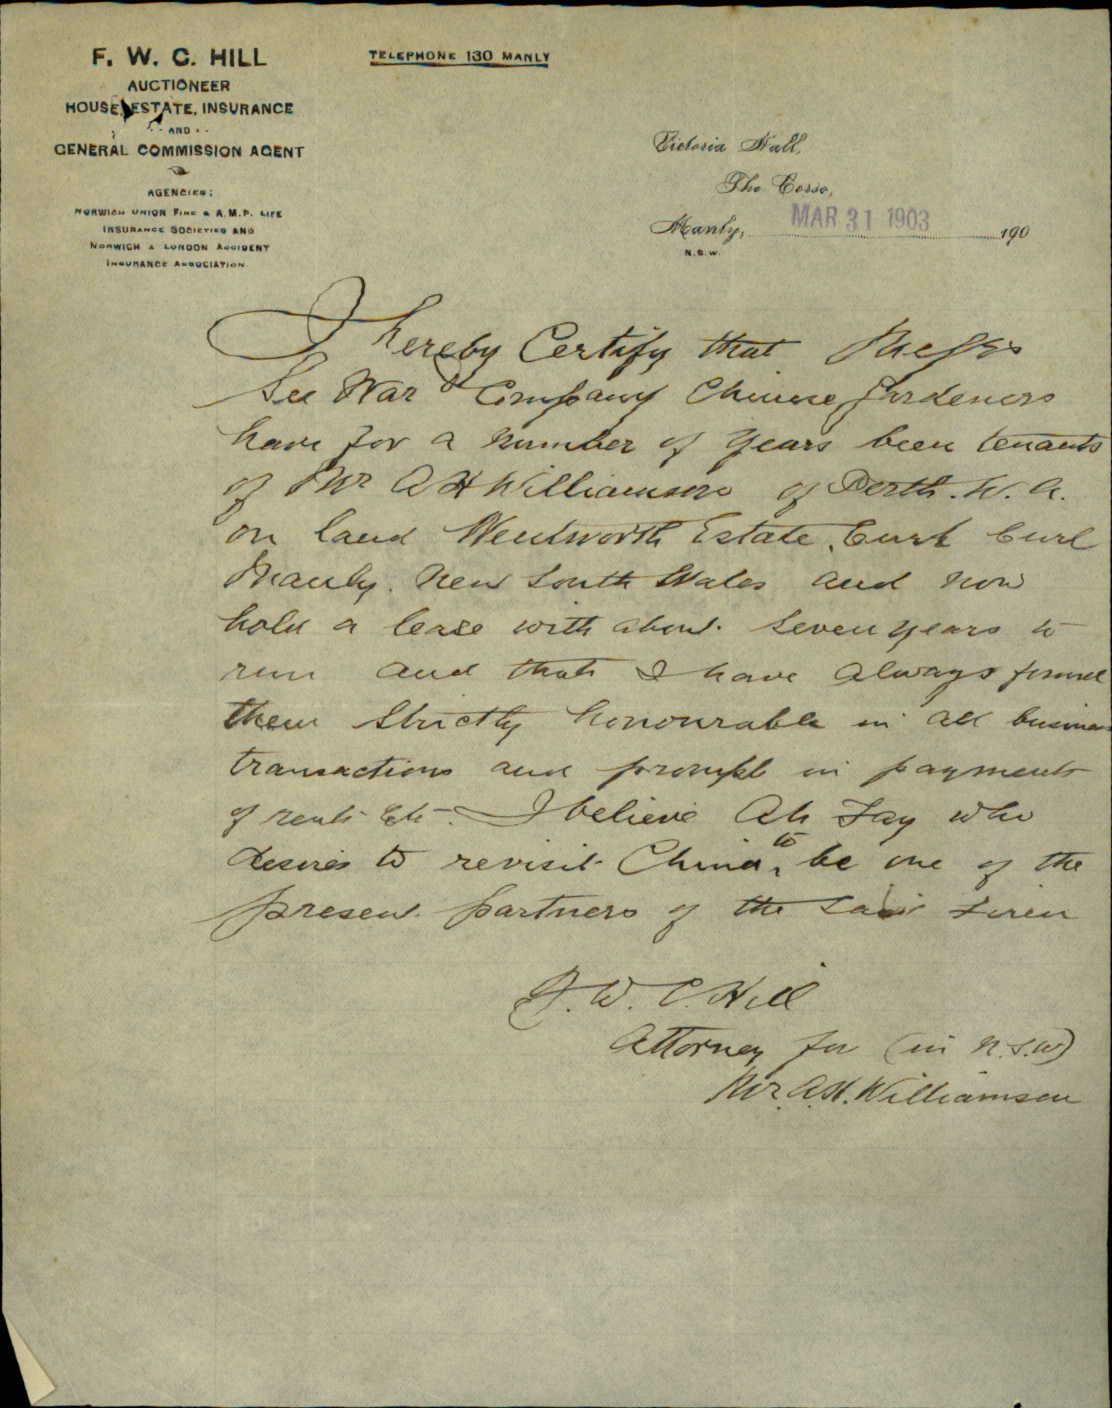 F. W. C. HILL
AUCTIONEER
HOUSE, ESTATE, INSURANCE
AND
GENERAL COMMISSION AGENT
AGENCIES:
NORWICH UNION FIRE & A.M.P. LIFE
INSURANCE SOCIETIES AND
NORWICH & LONDON ACCIDENT
INSURANCE ASSOCIATION
TELEPHONE 130 MANLY
Victoria Hall,
The Corso,
Manly, MAR 31 1903 190
N.S.W.
I hereby Certify that Messrs
See War & Company Chinese Gardeners
have for a number of years been tenants
of Mr A H Williamson of Perth. W. A.
on land Wentworth Estate, Curl Curl
Manly. New South Wales and now
hold a lease with about seven years to
run and that I have always found
them strictly honourable in all business
transactions and prompt in payments
of rents etc. I believe Ah Fay who
desires to revisit China, to be one of the
present partners of the said Firm
F. W. C. Hill
Attorney for (in N.S.W)
Mr. A.H. Williamson